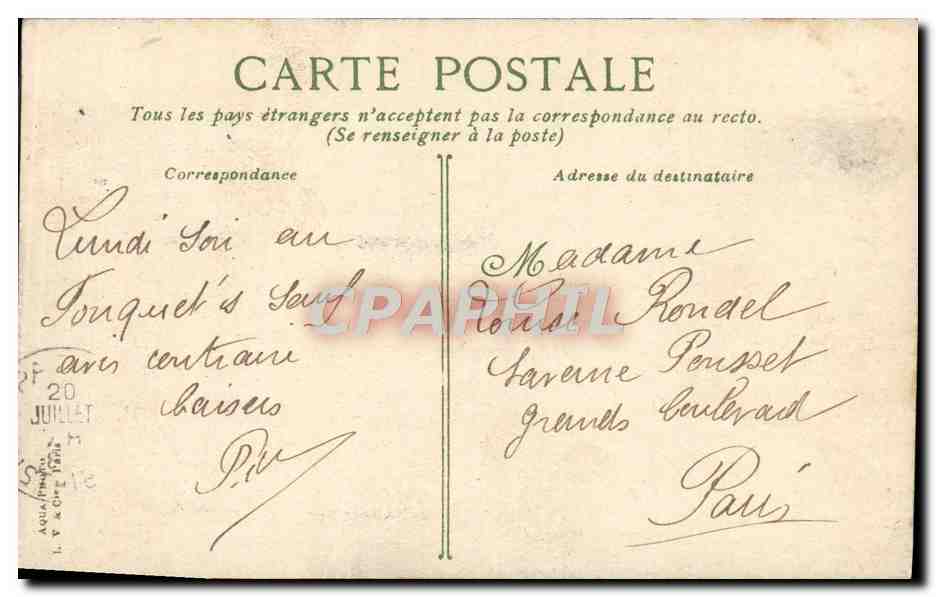 CARTE POSTALE
Tous les pays étrangers n'acceptent pas la correspondance au recto.
(Se renseigner à la poste)
Correspondance
Lundi Soir au
Fouquet's Sauf
avis contraire
baisers
Adresse du destinataire
Madame
Louise Rondel
Taverne Pousset
grands boulevard
Paris
20
JUILLET
AQUA PHOTO
L. V & Cie Paris
CPAPHIL